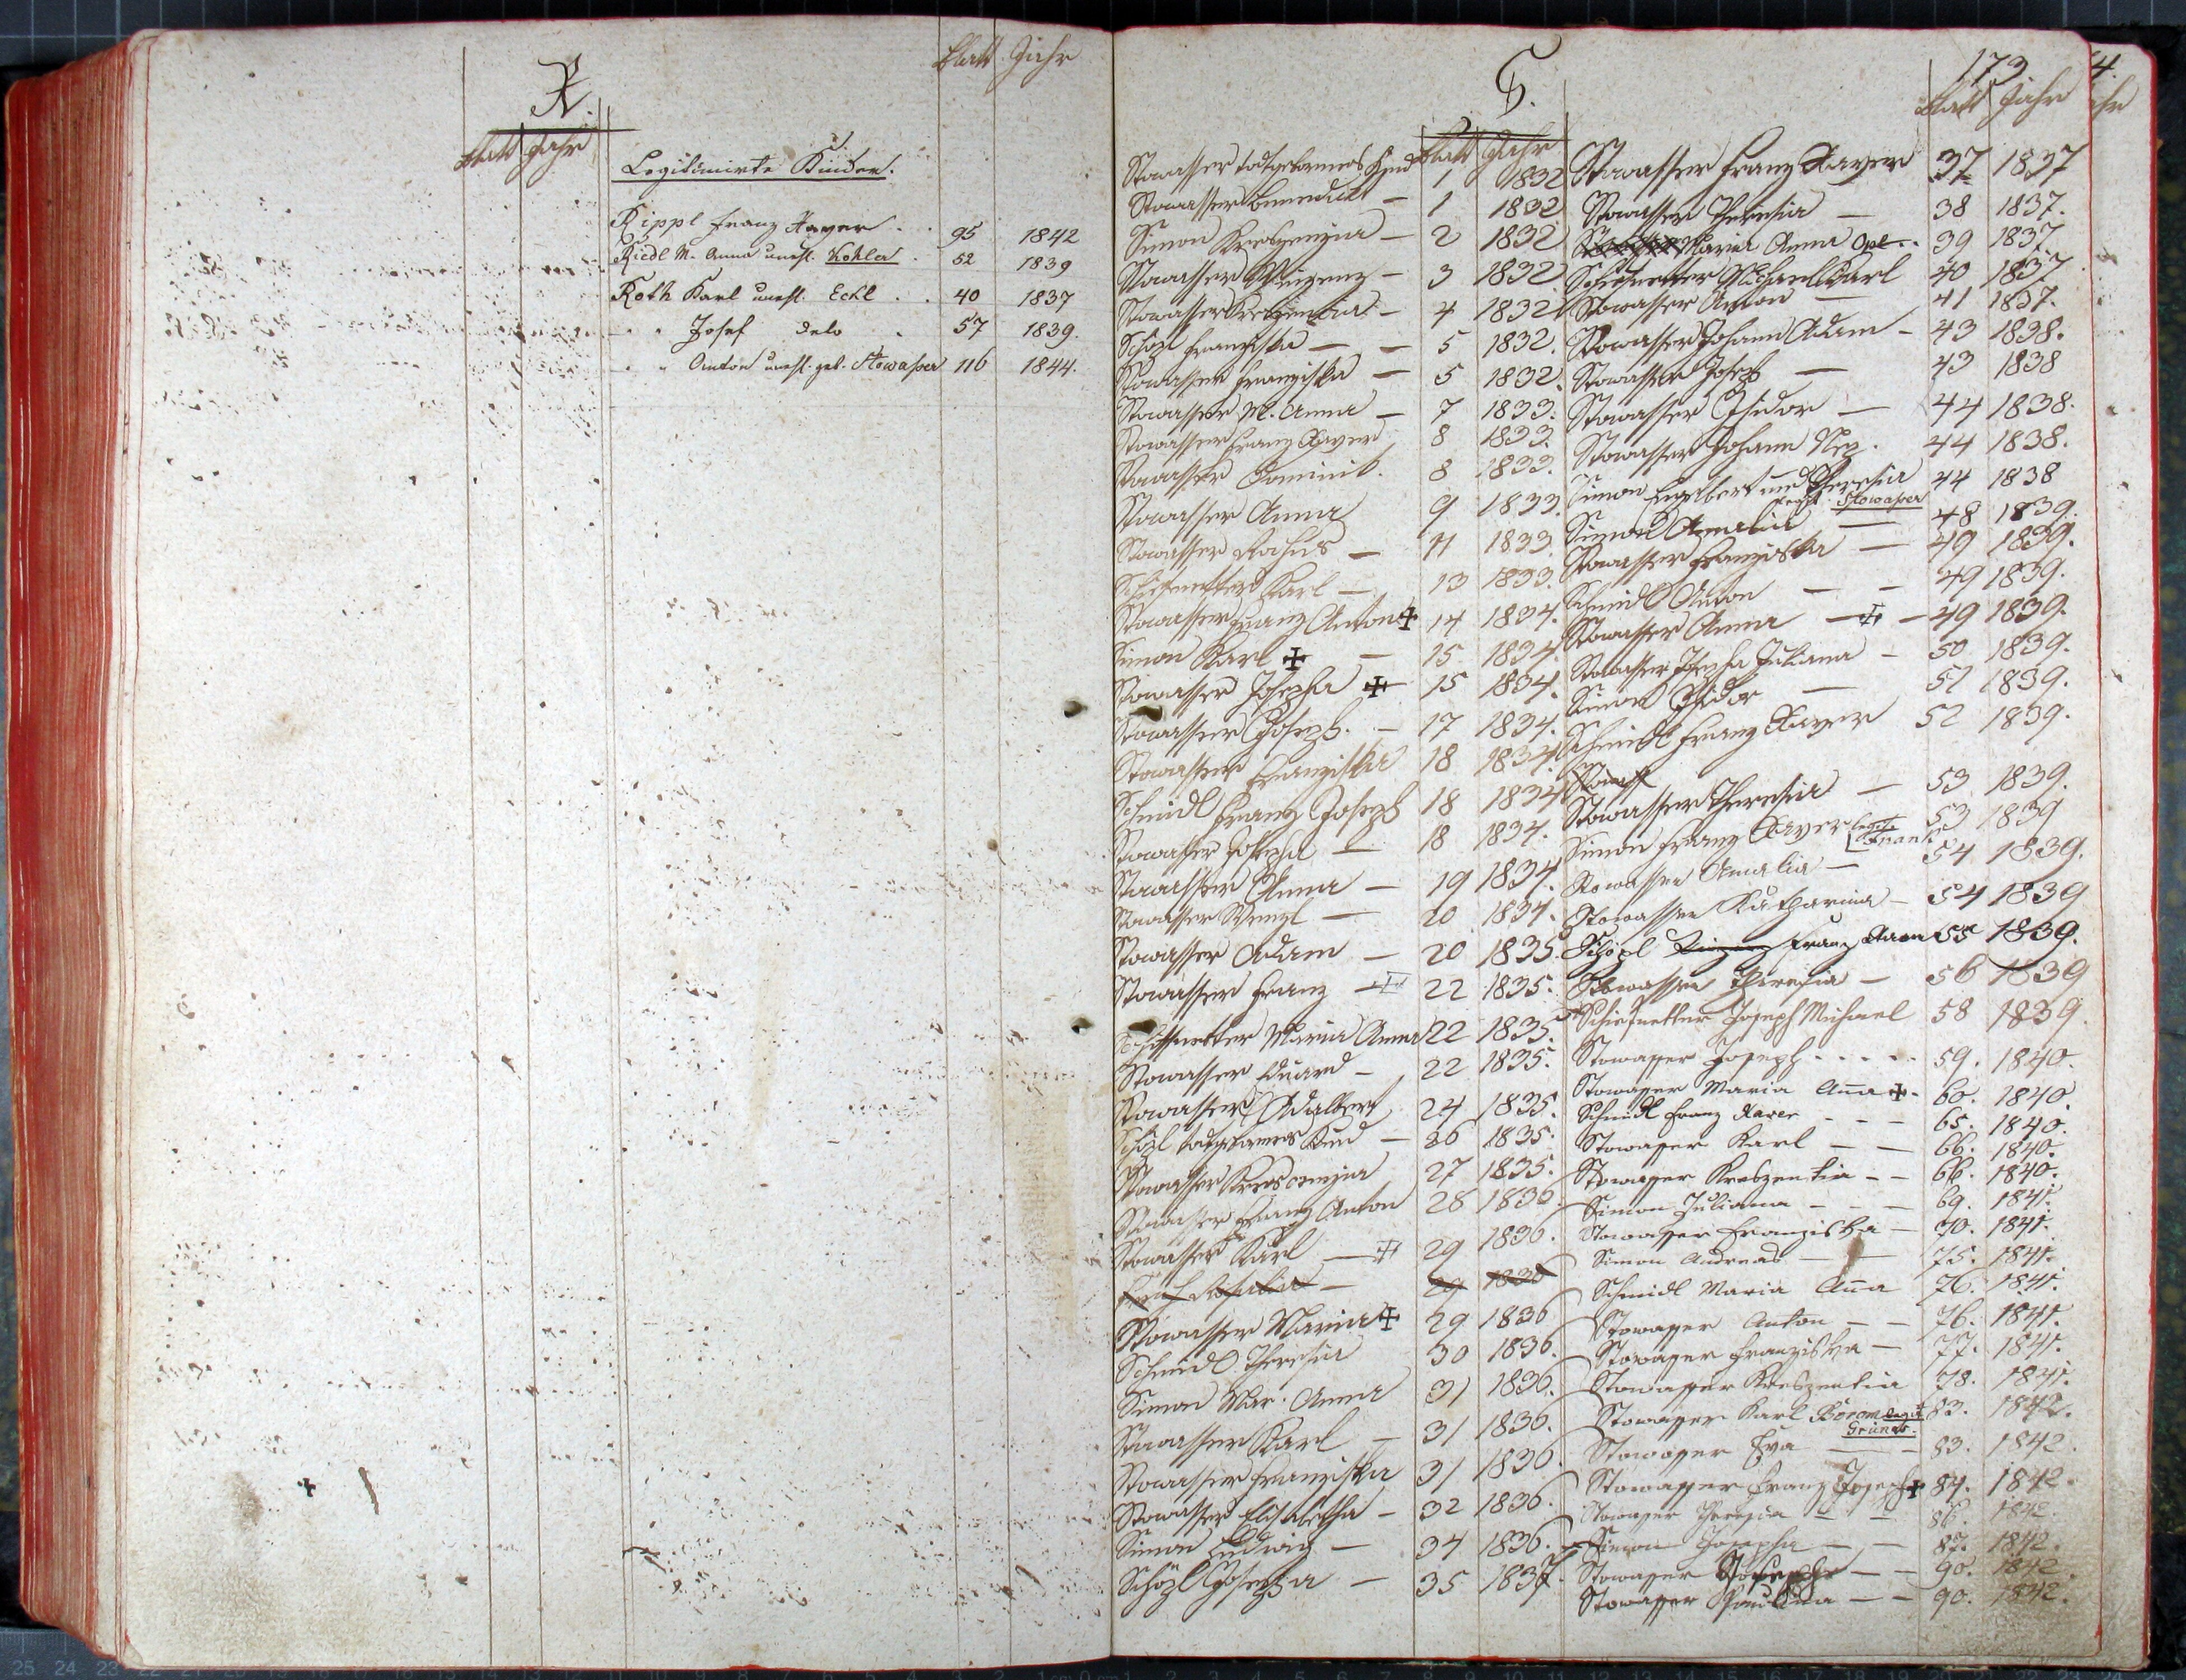 R.
Blatt Jahr
Blatt Jahr
Legitimirte Kinder.
Rippl Franz Xaver . . 95 1842
Riedl M. Anna unehl. Kohler . 52 1839
Roth Karl unehl. Eckl . . 40 1837
" " Josef deto . 57 1839.
" " Anton unehl. geb. Stowasser 116 1844.
S.
173
Blatt Jahr
Stowasser todtgebornes Kind 1 1832
Stowasser Benedickt – 1 1832
Simon Kreszenzia – 2 1832
Stowasser Vinzenz – 3 1832
Stowasser Kreszentia – 4 1832
Schözl Franziska – – 5 1832.
Stowasser Franziska – 5 1832.
Stowasser M. Anna – 7 1833.
Stowasser Franz Xaver 8 1833.
Stowasser Dominik. 8 1833.
Stowasser Anna 9 1833.
Stowasser Rochus – 11 1833.
Schiefnetter Karl – 13 1833.
Stowasser Franz Anton + 14 1834.
Simon Karl + – 15 1834.
Stowasser Josepha + 15 1834.
Stowasser Joseph. – 17 1834.
Stowasser Franziska 18 1834
Schmidl Franz Joseph 18 1834
Stowasser Josepha – 18 1834.
Stowasser Anna – 19 1834.
Stowasser Wenzl – 20 1834.
Stowasser Adam – 20 1835.
Stowasser Franz – + 22 1835.
Schiffnetter Maria Anna 22 1835.
Stowasser Eduard – 22 1835.
Stowasser Adalbert 24 1835.
Schözl todtgebornes Kind – 26 1835.
Stowasser Krescenzia 27 1835.
Stowasser Franz Anton 28 1836
Stowasser Karl – + 29 1836.
Rosalia – 29 1836
Stowasser Maria + 29 1836
Schmidl Theresia 30 1836.
Simon Mar. Anna 31 1836.
Stowasser Karl – 31 1836.
Stowasser Franziska 31 1836.
Stowasser Elisabetha – 32 1836.
Simon Ludwig – 34 1836.
Schözl Josepha – 35 1837.
Blatt Jahr
Stowasser Franz Xaver 37 1837
Stowasser Theresia – 38 1837.
Maria Anna Opl . . 39 1837.
Schiefnetter Michael Karl 40 1837
Stowasser Anton – 41 1837.
Stowasser Johann Adam – 43 1838.
Stowasser Joseph – 43 1838
Stowasser Isidor – 44 1838.
Stowasser Johann Nep. 44 1838.
Simon Engelbert und Theresia 44 1838
Stowasser
Simon Amalia – 48 1839.
Stowasser Franziska – 49 1839.
Schmidl Anton – – 49 1839.
Stowasser Anna – + – 49 1839.
Stowasser Josepha Juliana – 50 1839.
Simon Isidor – 51 1839.
Schmidl Franz Xaver 52 1839.
Stowass
Stowasser Theresia – 53 1839.
Simon Franz Xaver legit. Frank 53 1839
Stowasser Amalia – 54 1839.
Stowasser Katharina – 54 1839
Schözl Franz Xaver 55 1839.
Stowasser Theresia – 56 1839
Schiefnetter Joseph Michael 58 1839.
Stowasser Joseph . . . . . 59. 1840.
Stowasser Maria Ana + . 60. 1840.
Schmidl Franz Xaver – – – 65. 1840.
Stowasser Karl – – 66. 1840.
Stowasser Kreszentia – – 66. 1840.
Simon Juliana – – – 69. 1841.
Stowasser Franziska – 70. 1841.
Simon Andreas – – 75. 1841.
Schmidl Maria Ana 76. 1841.
Stowasser Anton – – 76. 1841.
Stowasser Franziska – 77. 1841.
Stowasser Kreszentia 78. 1841.
Stowasser Karl Borom. legit. 83. 1842.
Stowasser Eva – – 83. 1842.
Stowasser Franz Joseph + 84. 1842.
Stowasser Theresia – – 86. 1842.
Simon Josepha – – 87. 1842.
Stowasser Josepha – – 90. 1842
Stowasser Paulina – – 90. 1842.